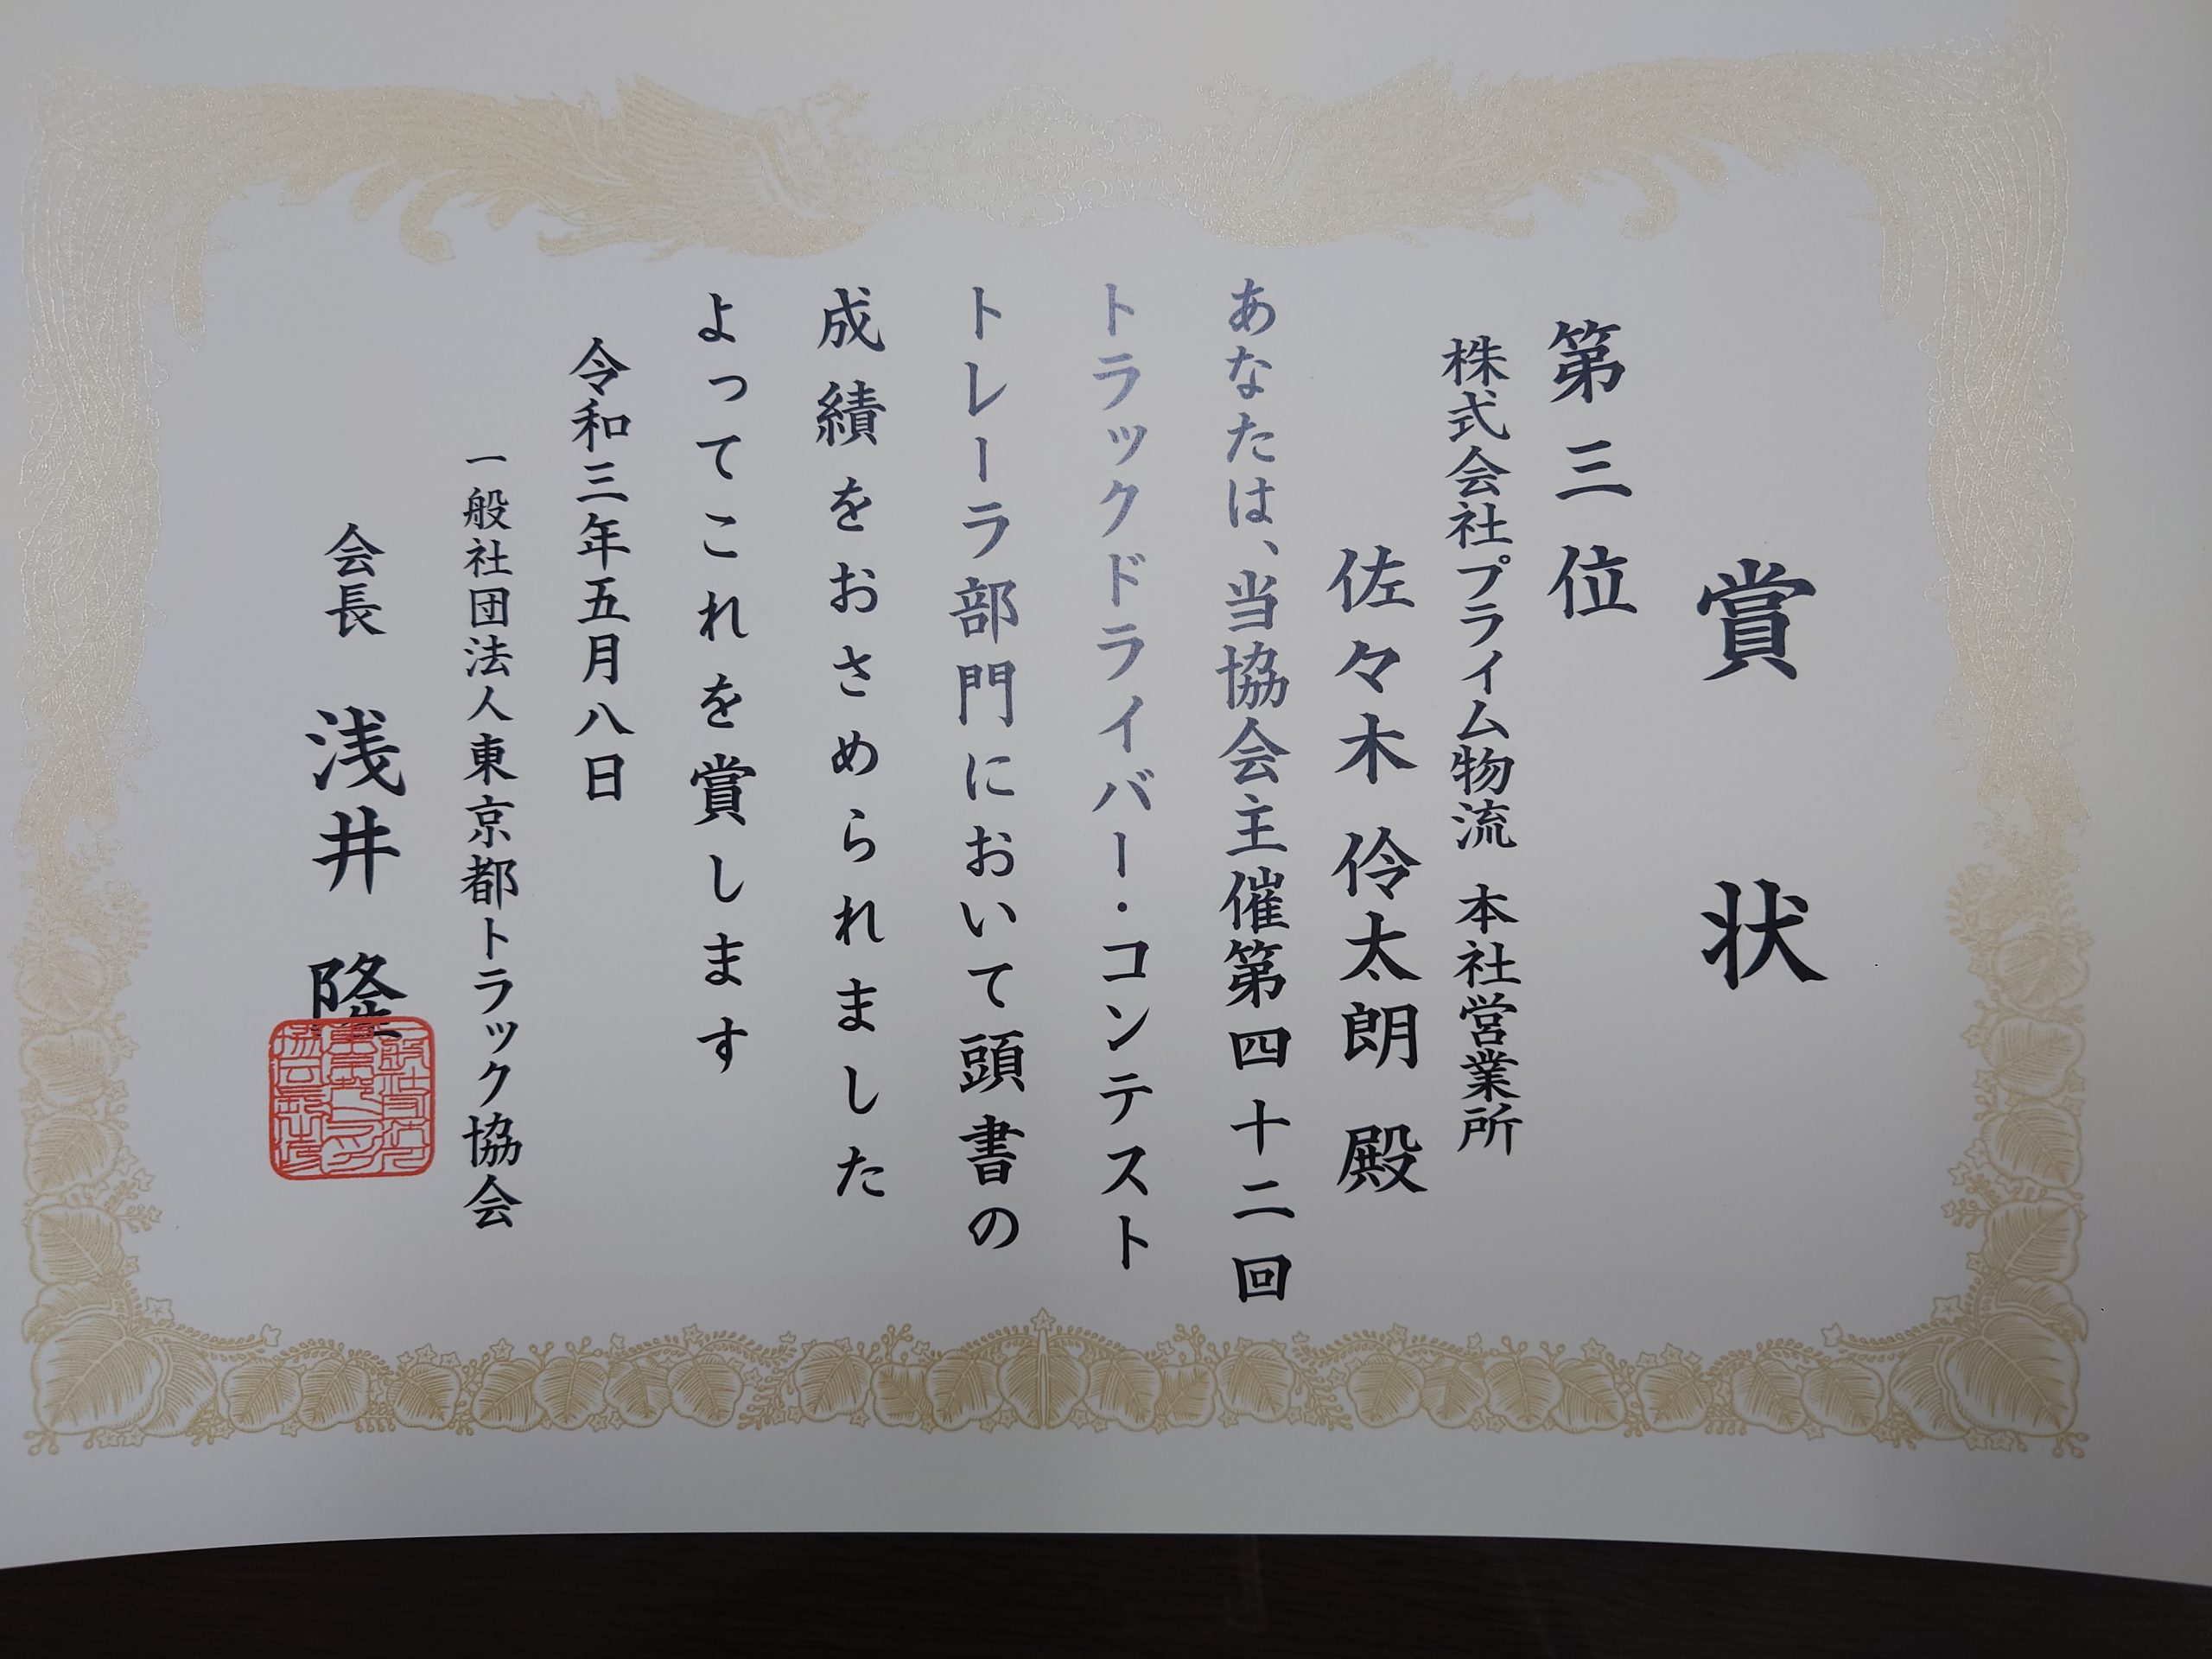 賞状
第三位
株式会社プライム物流 本社営業所
佐々木 伶太朗 殿
あなたは、当協会主催第四十二回
トラックドライバー・コンテスト
トレーラ部門において頭書の
成績をおさめられました
よってこれを賞します
令和三年五月八日
一般社団法人東京都トラック協会
会長 浅井 隆